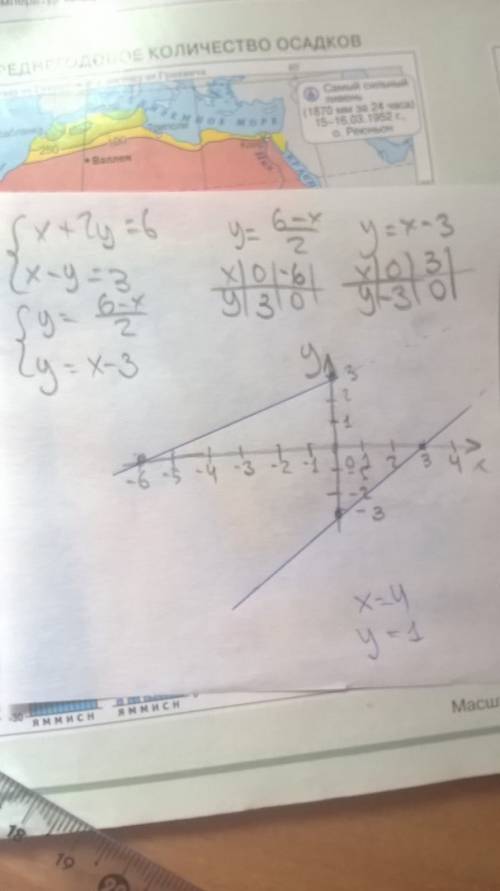 КОЛИЧЕСТВО ОСАДКОВ
Самый сильный
ливень
(1870 мм за 24 часа)
15–16.03.1952 г.,
о. Реюньон
МОРЕ
250
100
Валлен
{x+2y=6
{x-y=3
{y=\frac{6-x}{2}
{y=x-3
y=\frac{6-x}{2}
x|0|-6|
y|3|0|
y=x-3
x|0|3|
y|-3|0|
y
3
2
1
-6 -5 -4 -3 -2 -1 0 1 2 3 4 x
-2
-3
x=4
y=1
-30
ЯММИСН ЯММИСН
Масш
18
19
20